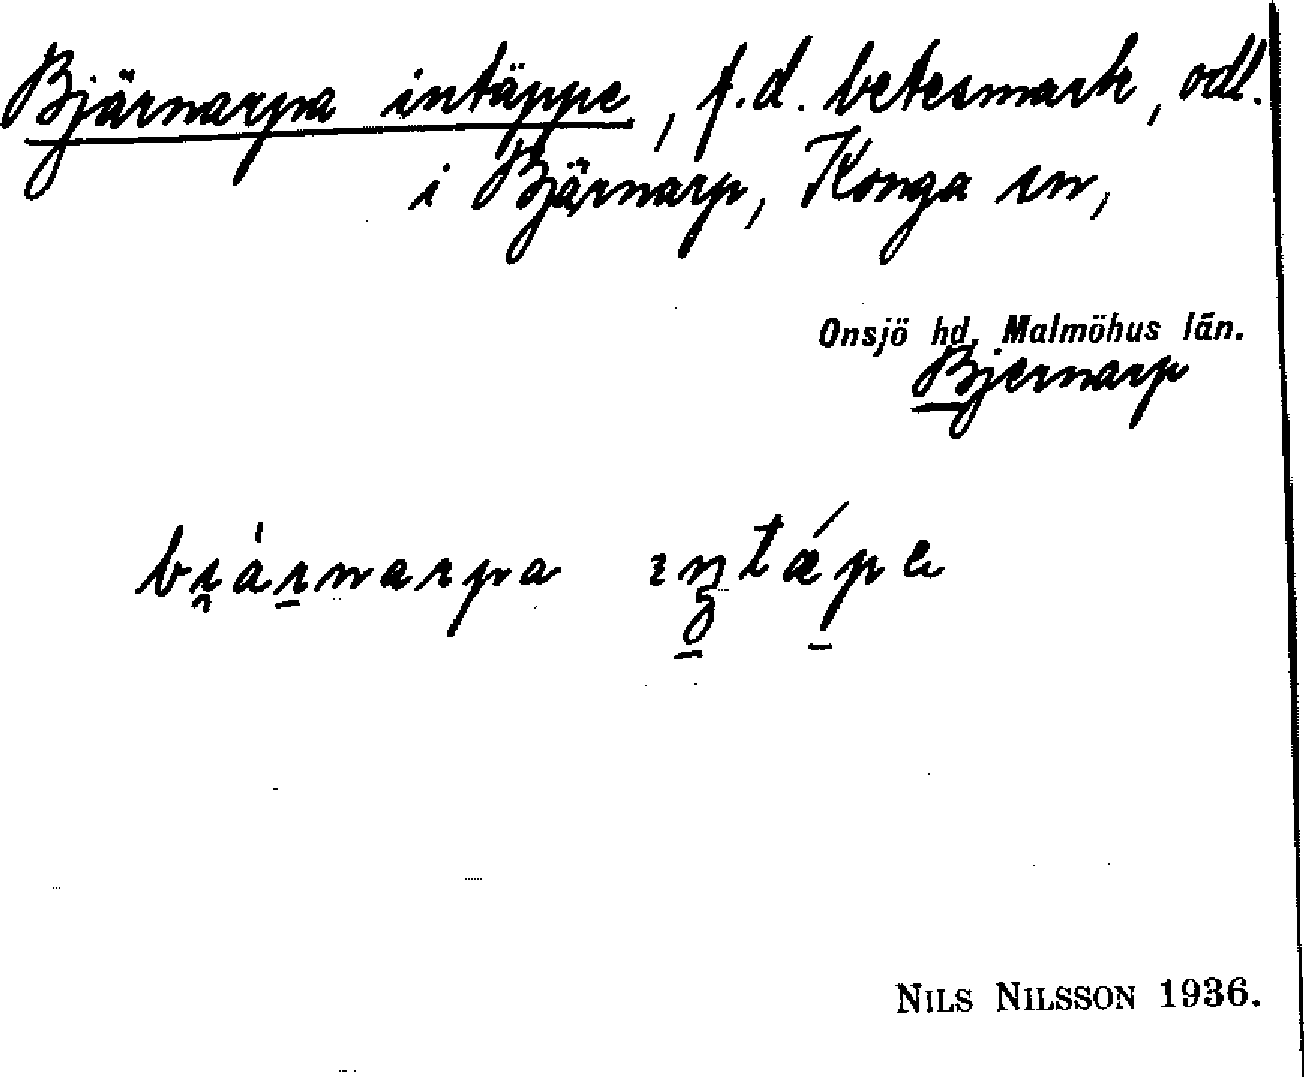 Bjärnarpa intäppe, f.d. betesmark, odl.
i Bjärnarp, Konga sn,
Onsjö hd, Malmöhus län.
Bjernarp
NILS NILSSON 1936.